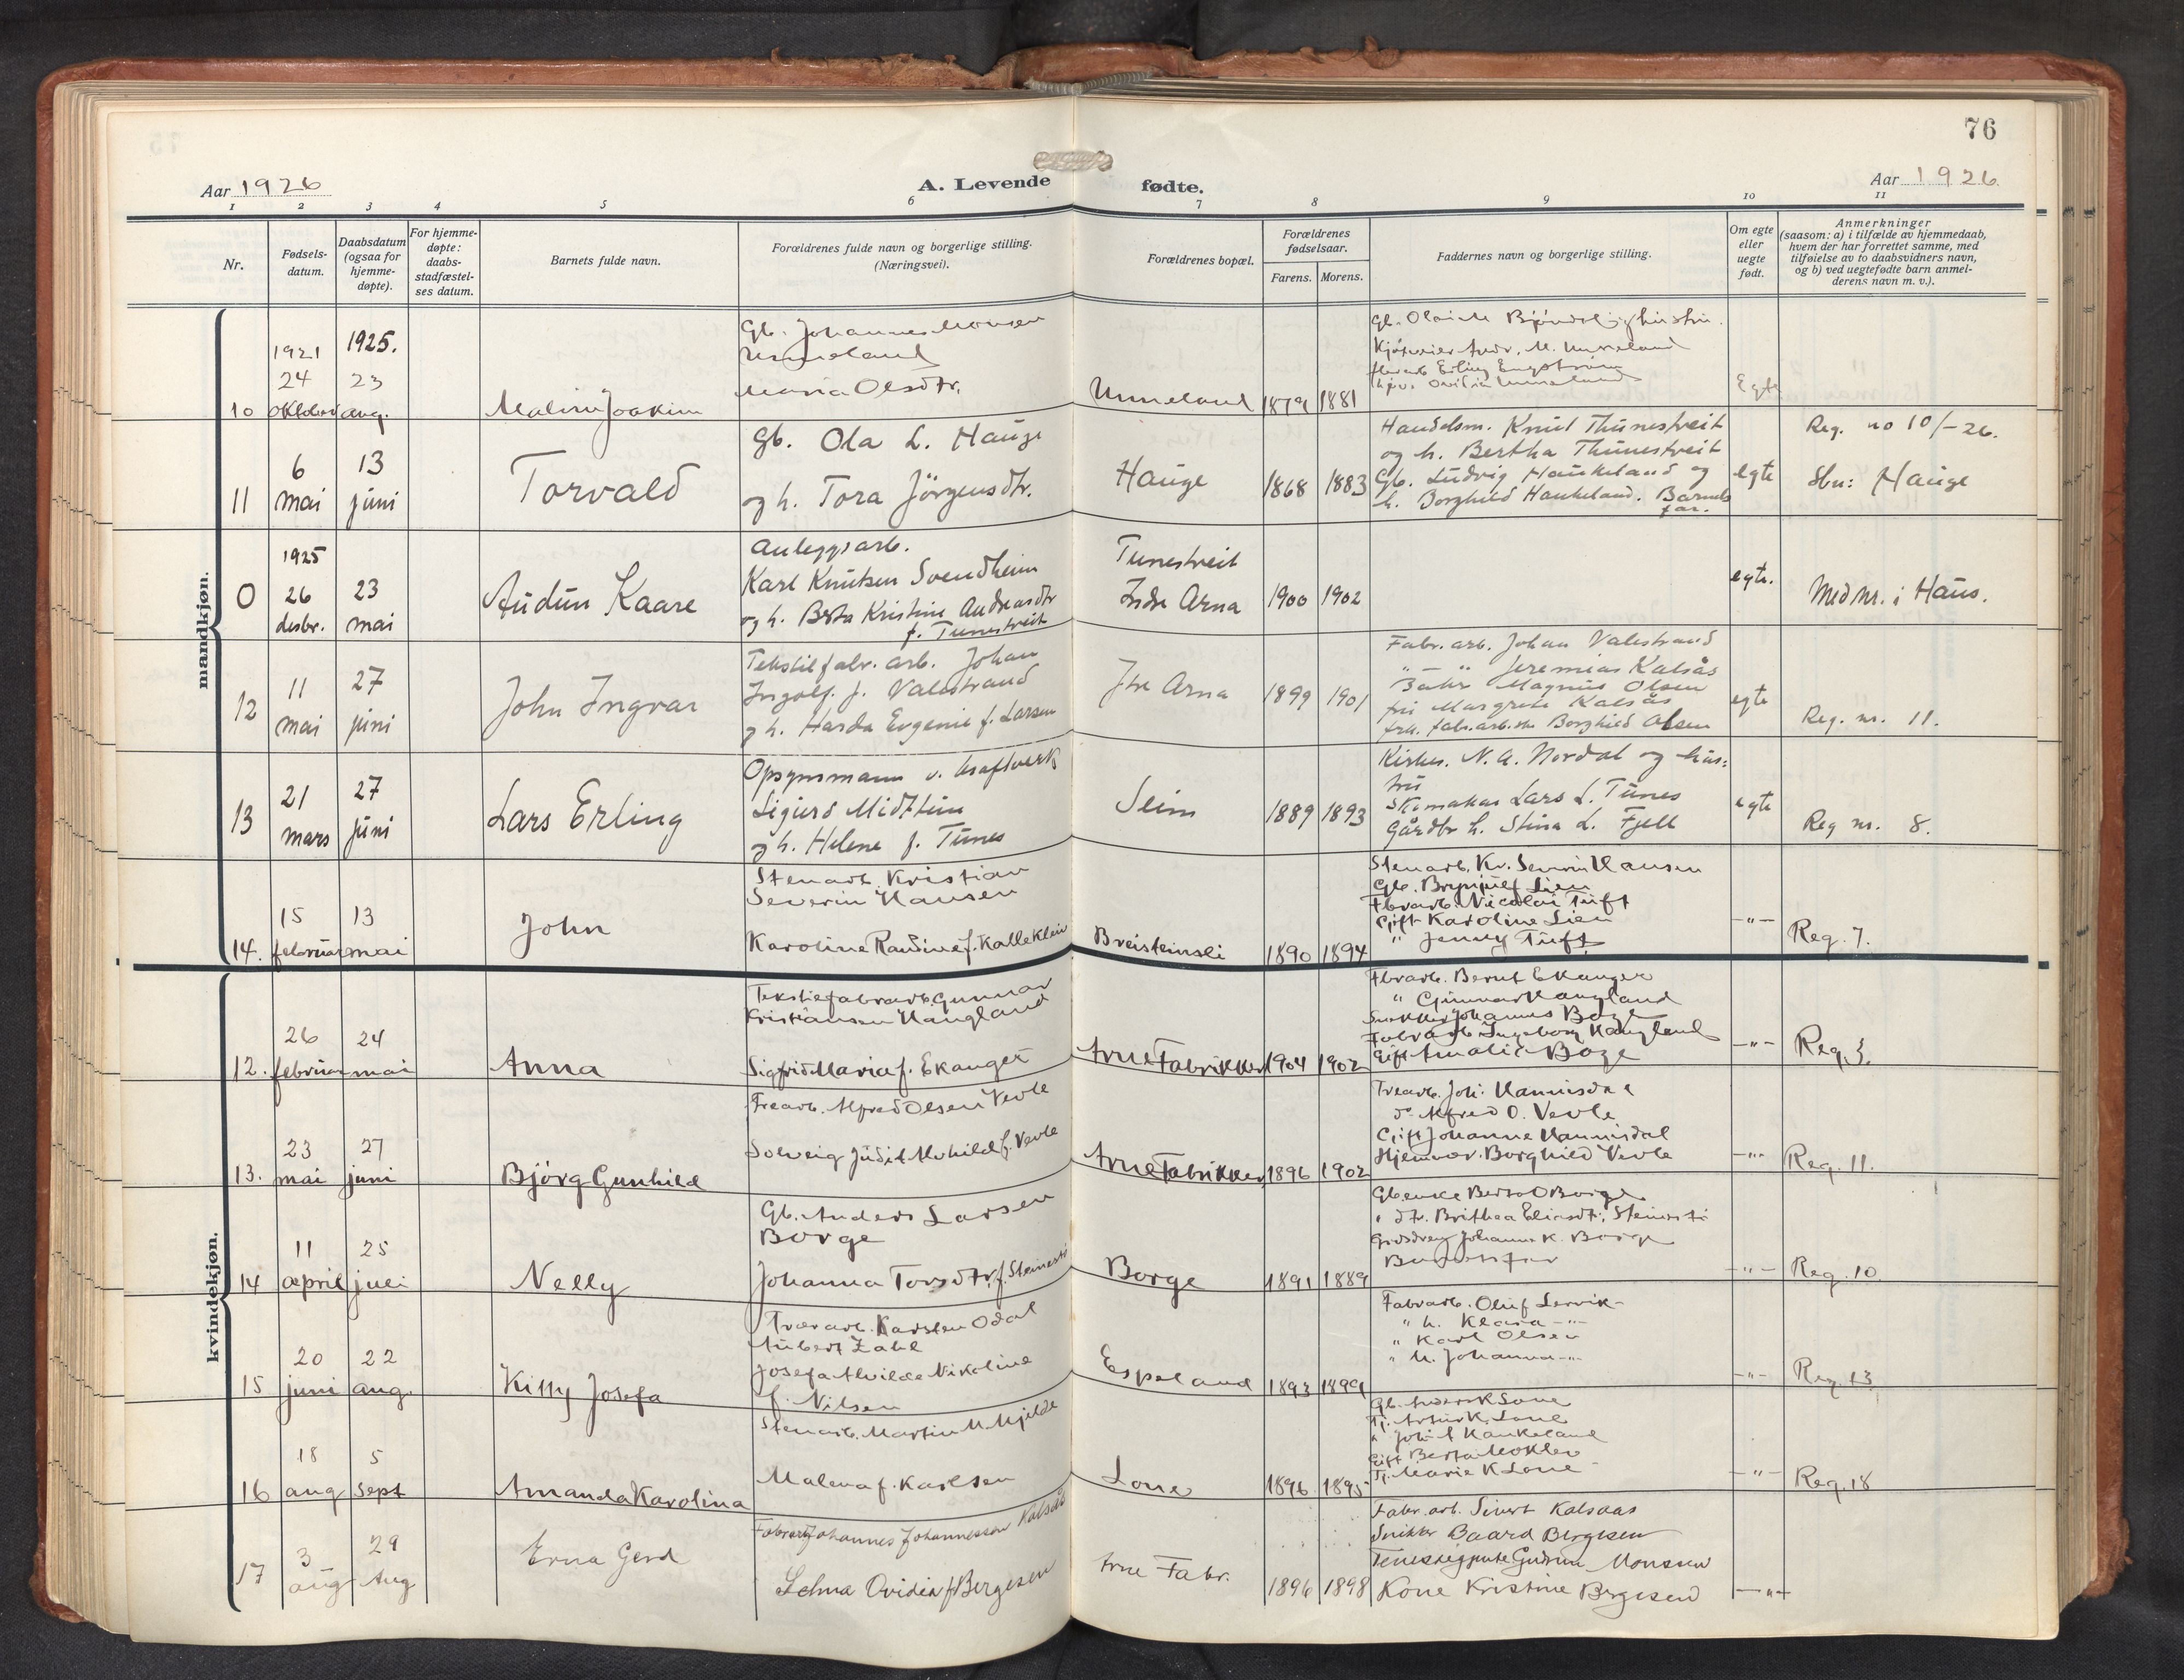 76
Aar 1926
A. Levende fødte.
Aar 1926.
1 2 3 4 5 6 7 8 9 10 11
Nr.
Fødsels-
datum.
Daabsdatum
(ogsaa for
hjemme-
døpte).
For hjemme-
døpte:
daabs-
stadfæstel-
ses datum.
Barnets fulde navn.
Forældrenes fulde navn og borgerlige stilling.
(Næringsvei).
Forældrenes bopæl.
Forældrenes
fødselsaar.
Farens. Morens.
Faddernes navn og borgerlige stilling.
Om egte
eller
uegte
født.
Anmerkninger
(saasom: a) i tilfælde av hjemmedaab,
hvem der har forrettet samme, med
tilføielse av to daabsvidners navn,
og b) ved uegtefødte barn anmel-
derens navn m. v.).
mandkjøn.
10
1921
24
oktober
1925.
23
aug.
Malvin Joakim
Gb. Johannes Monsen
Unneland
Maria Olsdtr.
Unneland
1879 1881
Gb. Olai M Bjørndal og hustru.
Kjøpmann Andr. M. Unneland
Erling Engstrøm
Ovidia Unneland
Egte
11
6
mai
13
juni
Torvald
Gb. Ola L. Hauge
og h. Tora Jörgensdtr.
Hauge
1868 1883
Handelsm. Knut Thunestveit
og h. Bertha Thunestveit
Gb. Ludvig Haukeland og
h. Borghild Haukeland. Barnets
far.
egte
Reg. no 10/-26.
Sbn: Hauge
0
1925
26
desbr.
23
mai
Audun Kaare
Anleggsarb.
Karl Knutsen Svendheim
og h. Berta Kristine Andreasdtr
f. Tunestveit
Tunestveit
Indre Arna
1900 1902
egte.
Med nr. i Haus.
12
11
mai
27
juni
John Ingvar
Tekstilfabr. arb. Johan
Ingolf. J. Valestrand
og h. Harda Evgenie f. Larsen
Ytre Arna
1899 1901
Fabr. arb. Johan Valestrand
" — " Jeremias Kalsås
Magnus Olsen
fru Margrete Kalsås
frk. fabr.arb.ske Borghild Olsen
egte
Reg. nr. 11.
13
21
mars
27
juni
Lars Erling
Opsynsmann v. kraftverk
Sigurd Midttun
og h. Helene f. Tunes
Seim
1889 1893
Kirkes. N. A. Nordal og hus-
tru
Skomaker Lars L. Tunes
Gårdbr h. Stina L. Fjell
egte
Reg nr. 8.
14.
15
februar
13
mai
John
Stenarb. Kristian
Severin Hansen
Karoline Randine f. Kalleklein
Breisteinsli
1890 1894
Stenarb. Kr. Severin Hansen
Gb. Brynjulf Lien
Fbrarb. Nicolai Tuft
Gift Karoline Lien
" Jenny Tuft
—"—
Reg. 7.
kvindekjøn.
12.
26
februar
24
mai
Anna
Tekstilfabrarb. Gunnar
Kristiansen Haugland
Sigfrid Maria f. Ekanger
Arne Fabrikker
1904 1902
Fbrarb. Bernt Ekanger
" Gunnar Haugland
Snekker Johannes Boge
Fabrarb. Ingeborg Haugland
Gift Amalie Boge
—"—
Reg. 3.
13.
23
mai
27
juni
Björg Gunhild
Trearb. Alfred Olsen Vevle
Solveig Judit Alvhild f. Vevle
Arne Fabrikker
1896 1902
Trearb. Joh. Hannisdal
do Alfred O. Vevle
Gift Johanne Hannisdal
Hjemmev. Borghild Vevle
—"—
Reg. 11.
14
11
april
25
juli
Nelly
Gb. Anders Larsen
Borge
Johanna Torsdtr. f. Steinstö
Borge
1891 1889
Gbenke Berta O Borge
" dtr. Brithea Eliasdtr. Steinstö
Gårdsdreng Johannes K. Borge
Barnets far
—"—
Reg. 10
15
20
juni
22
aug.
Killy Josefa
Karsten Odal
Aubert Zahl
Josefa Alvilde Nikoline
f. Nilsen
Espeland
1893 1899
Fabrarb. Oluf Lervik
" h. Klara —"—
" Karl Olsen
" h. Johanna —"—
—"—
Reg. 13
16
18
aug
5
sept
Amanda Karolina
Stenarb. Martin M. Mjelde
Malena f. Karlsen
Lone
1896 1895
Gb. Anders K Lone
Tj. Artur K. Lone
" Joh. A Haukeland
Gift Berta Moklev
Tj. Marie K Lone
—"—
Reg. 18
17
3
aug
29
Aug
Erna Gerd
Fabrarb Johannes Johannessen Kalsås
Selma Ovidia f Bergesen
Arne Fabr.
1896 1898
Fabr. arb. Sivert Kalsaas
Snikker Baard Bergesen
Tenestegjente Gudrun Monsen
Kone Kristine Bergesen
—"—